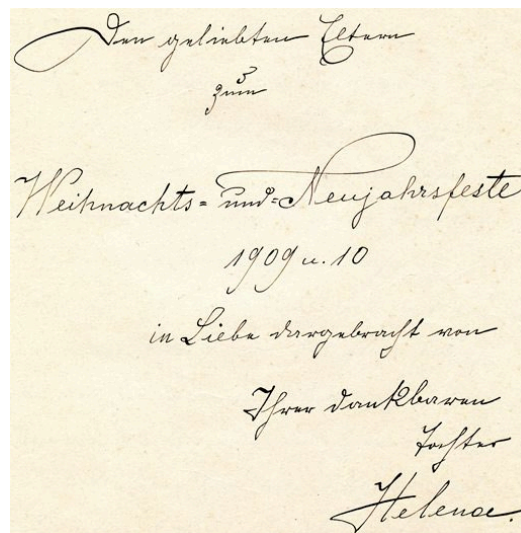 Den geliebten Eltern
zum
Weihnachts- und Neujahrsfeste
1909 u. 10
in Liebe dargebracht von
Ihrer dankbaren
Tochter
Helene.